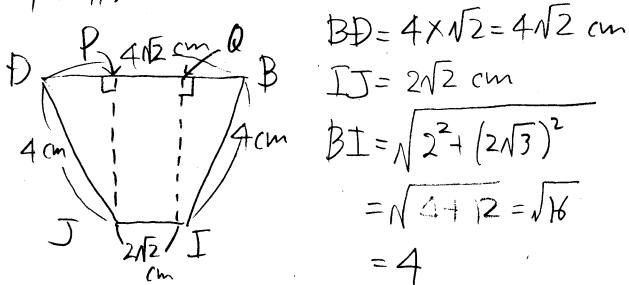 P 4√2 cm Q
D B
4 cm
4 cm
J I
2√2
cm
BD = 4×√2 = 4√2 cm
IJ = 2√2 cm
BI = √(2² + (2√3)²)
= √(4+12) = √16
= 4